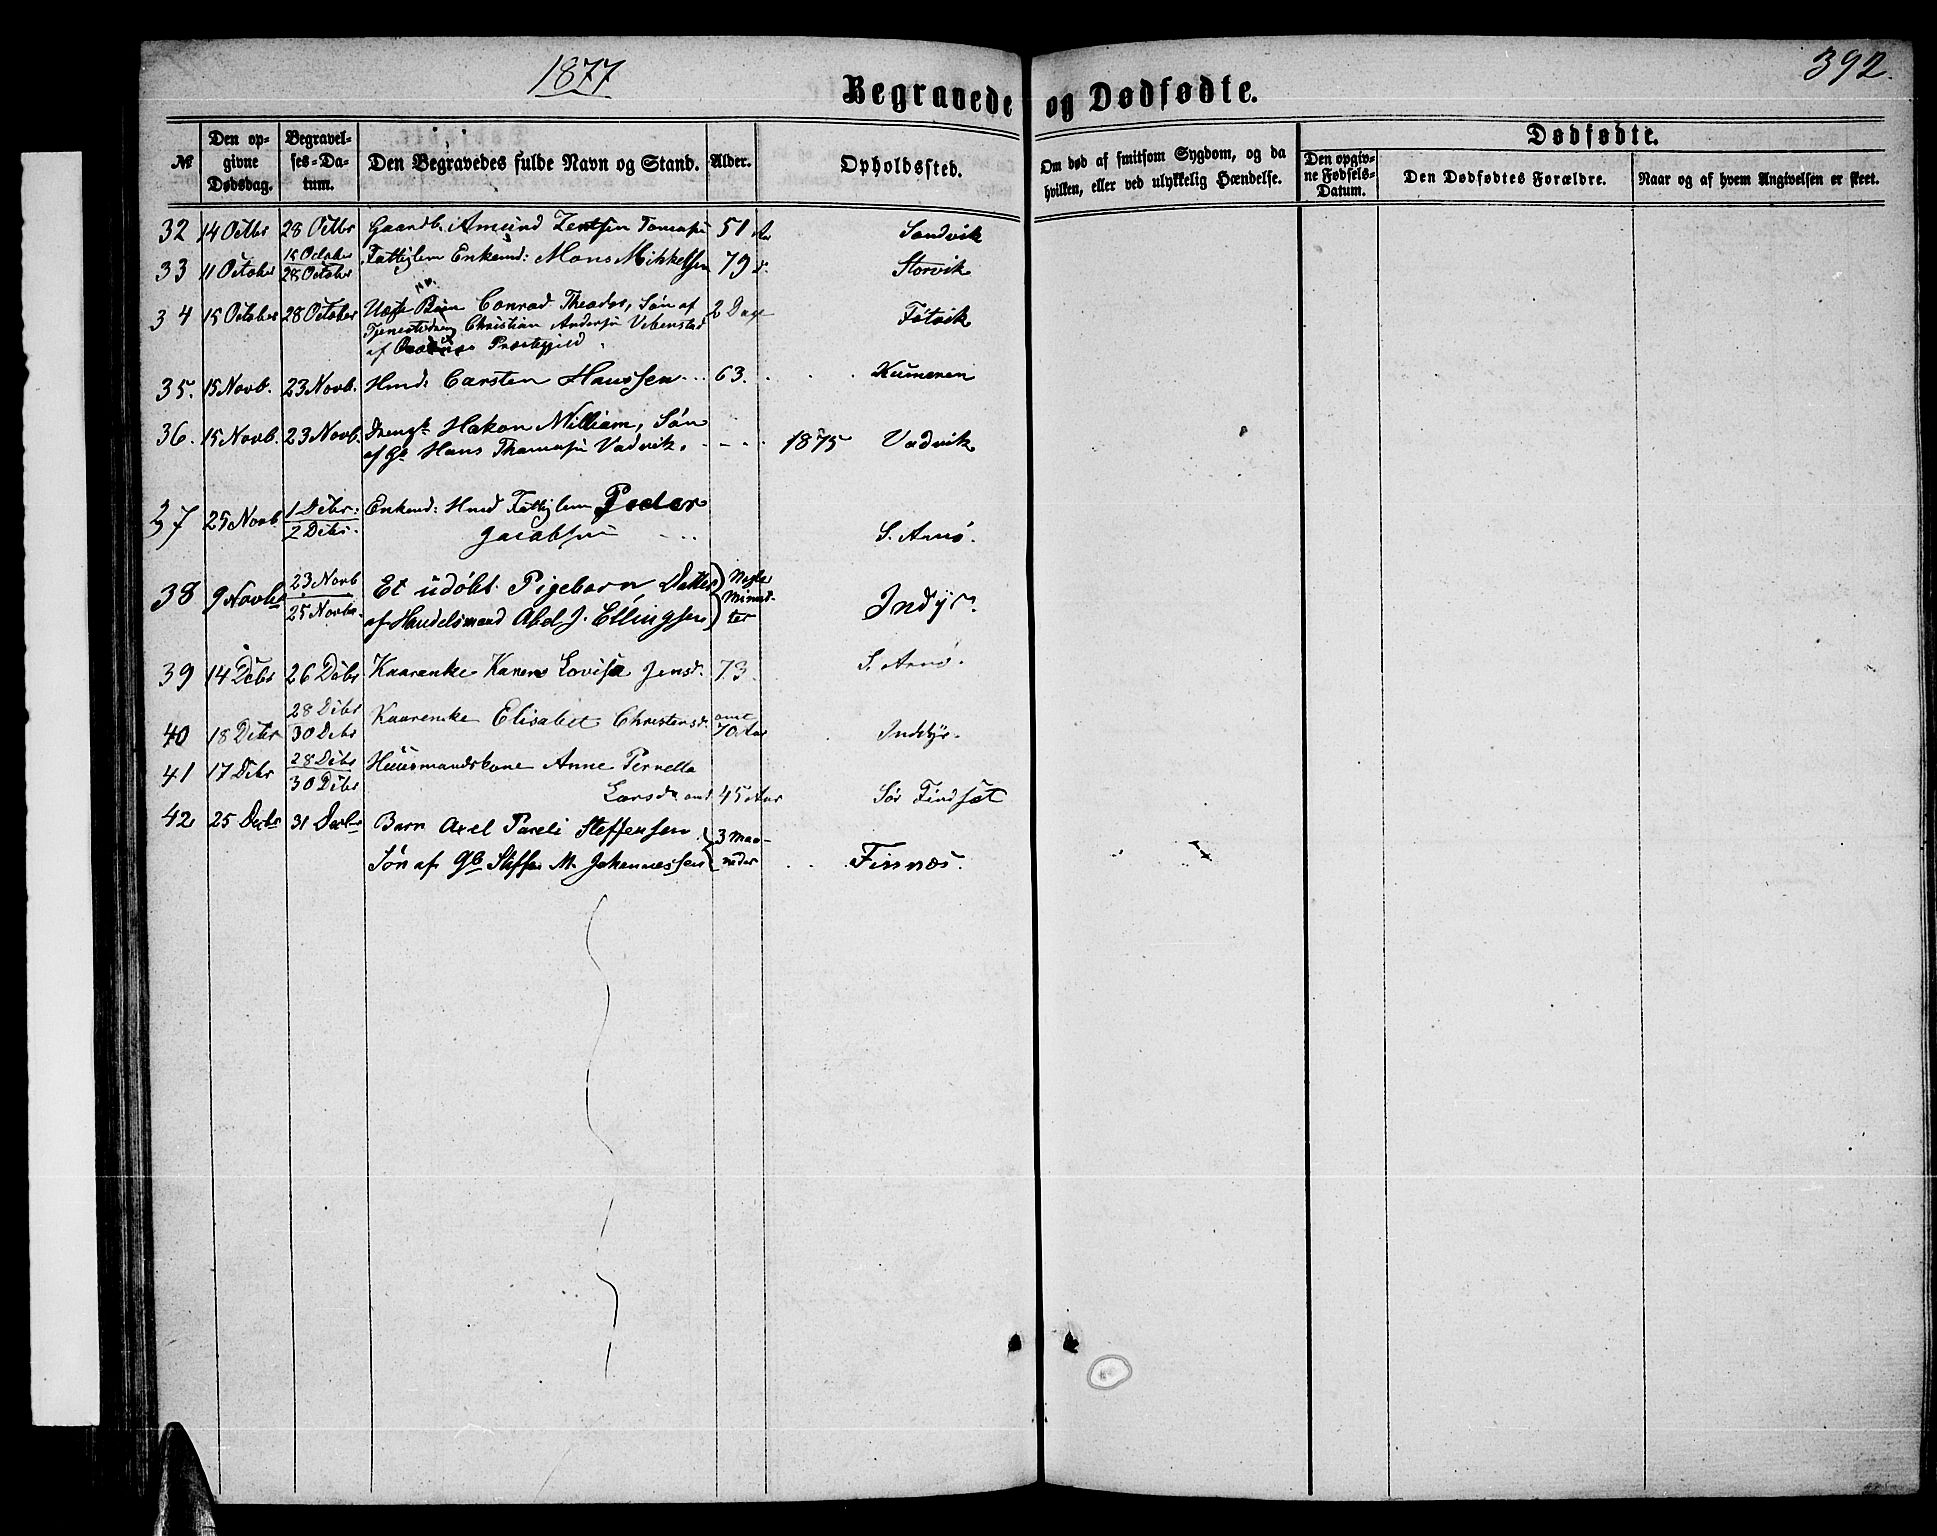 1877
392.
Begravede og Dødfødte.
№
Den opgivne Dødsdag.
Begravelses-Datum.
Den Begravedes fulde Navn og Stand.
Alder.
Opholdssted.
Om død af smitsom Sygdom, og da hvilken, eller ved ulykkelig Hændelse.
Dødfødte.
Den opgivne Fødsels-Datum.
Den Dødfødtes Forældre.
Naar og af hvem Angivelsen er skeet.
32 14 Octbr 28 Octbr Gaardb. Amund 51 Aar Sandvik
33 11 October 15 October 28 October Fattiglem Enkemd: Mons Mikkelsen 79 d. Storvik
34 15 October 28 October Uægte Barn Conrad Theodor, Søn af 2 Dage
Tjenestedreng Christian Andersen
af Præstegjeld
35. 15 Novb. 23 Novb. Hmd: Carsten Hanssen 63.
36. 15 Novb. 23 Novb. Hakon William, Søn
af Gb Hans Thomassen Vadvik. - - - 1875 Vadvik
37 25 Novb 1 Debr: 2 Debr. Enkemd: Hmd Fattiglem Peder
Jacobsen S. Arnø.
38 9 Novbr 23 Novb 25 Novbr. Et udøbt Pigebarn Datter Nogle
af Handelsmand Abel J. Ellingsen Minutter Indyr.
39 14 Debr 26 Debr Kaarenke Karen Lovisa Jensd. 73. S. Arnø.
40 18 Debr 28 Debr 30 Debr Kaarenke Elisabet Christensd. omt 70 Aar Inddyr.
41 17 Debr 28 Debr 30 Debr Huusmandskone Anne Pernella
Larsdr omt 45 Aar Sør Findset
42 25 Decbr 31 Decbr Barn Axel Pareli Steffensen 3 Maa-
Søn af Gb Steffen M. Johannessen neder Finnæs.